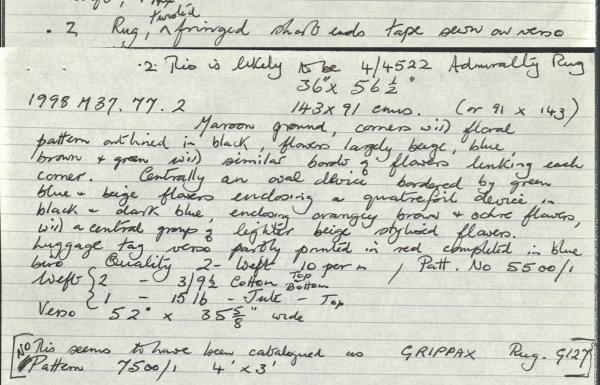 .2 Rug, twisted fringed short ends tape sewn on verso
.2. This is likely to be 4/4522 Admiralty Rug
36" x 56 1/2"
1998 M37.77.2 143 x 91 cms. (or 91 x 143)
Maroon ground, corners with floral
pattern outlined in black, flowers largely beige, blue,
brown + green with similar border of flowers linking each
corner. Centrally an oval device bordered by green
blue + beige flowers enclosing a quatrefoil device in
black + dark blue, enclosing orangey brown + ochre flowers,
with a central group of lighter beige stylised flowers.
Luggage tag verso partly printed in red completed in blue
biro Quality 2 - Weft 10 per in / Patt. No 5500/1
Weft { 2 - 3/9 1/2 Cotton Top Bottom
1 - 15 lb - Jute - Top
Verso 52" x 35 5/8" wide
[NO This seems to have been catalogued as GRIPPAX Rug. G127]
Pattern 7500/1 4' x 3'